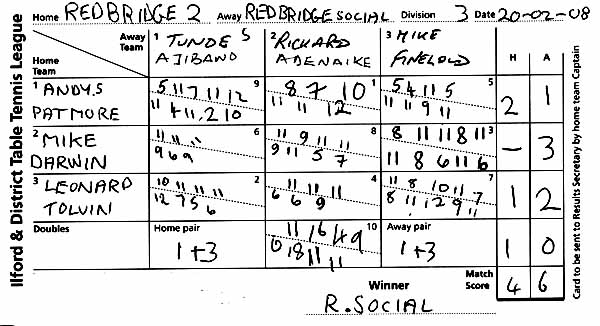 Ilford & District Table Tennis League
Home REDBRIDGE 2 Away REDBRIDGE SOCIAL Division 3 Date 20-02-08
Away Team 1 TUNDE S AJIBAND 2 RICHARD ADENAIKE 3 MIKE FINELOLD H A
Home Team
1 ANDY.S PATMORE
5 11 7 11 12 9
11 4 11 2 10
8 7 10 1
11 11 12
5 4 11 5 5
11 11 9 11
2 1
2 MIKE DARWIN
11 11 11 6
9 6 9
11 9 11 11 8
9 11 5 7
8 11 11 8 11 3
11 8 6 11 6
- 3
3 LEONARD TOLVIN
10 11 11 11 11 2
12 7 5 6
11 11 11 4
6 6 9
11 8 10 11 7
8 11 12 9 11
1 2
Doubles Home pair 1+3
10
11 16 4 9
6 18 11 11
Away pair 1+3
1 0
Winner R.SOCIAL Match Score 4 6
Card to be sent to Results Secretary by home team Captain